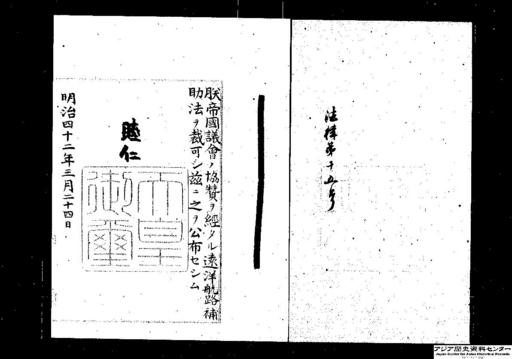 法律第十五号
朕帝國議會ノ協贊ヲ經タル遠洋航路補
助法ヲ裁可シ茲ニ之ヲ公布セシム
睦仁
天皇
御璽
明治四十二年三月二十四日
アジア歴史資料センター
Japan Center for Asian Historical Records